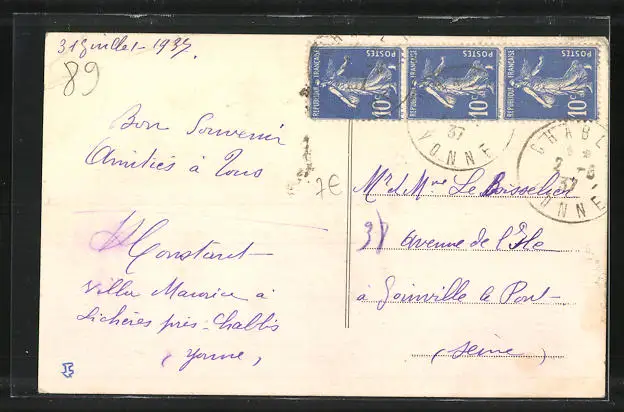 31 juillet 1937.
89
Bon Souvenir
Amitiés à Tous
H Constant
Villa Maurice à
Lichères près Chablis
(Yonne)
7€
RÉPUBLIQUE FRANÇAISE POSTES 10c
RÉPUBLIQUE FRANÇAISE POSTES 10c
RÉPUBLIQUE FRANÇAISE POSTES 10c
37
YONNE
CHABL
2 - 8
37
ONNE
Mr et Mme Le Boisselier
31 Avenue de l'Ile
à Joinville le Pont
(Seine)